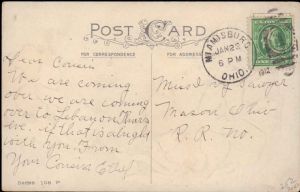 POST CARD
FOR CORRESPONDENCE
FOR ADDRESS
MIAMISBURG
JAN 23
6 PM
1912
OHIO.
Dear Cousin
We are coming
over we are coming
over to Lebanon
eve. if that is alright
with you. From
Your Cousin Ethel
Miss
Mason Ohio
R. R. No.